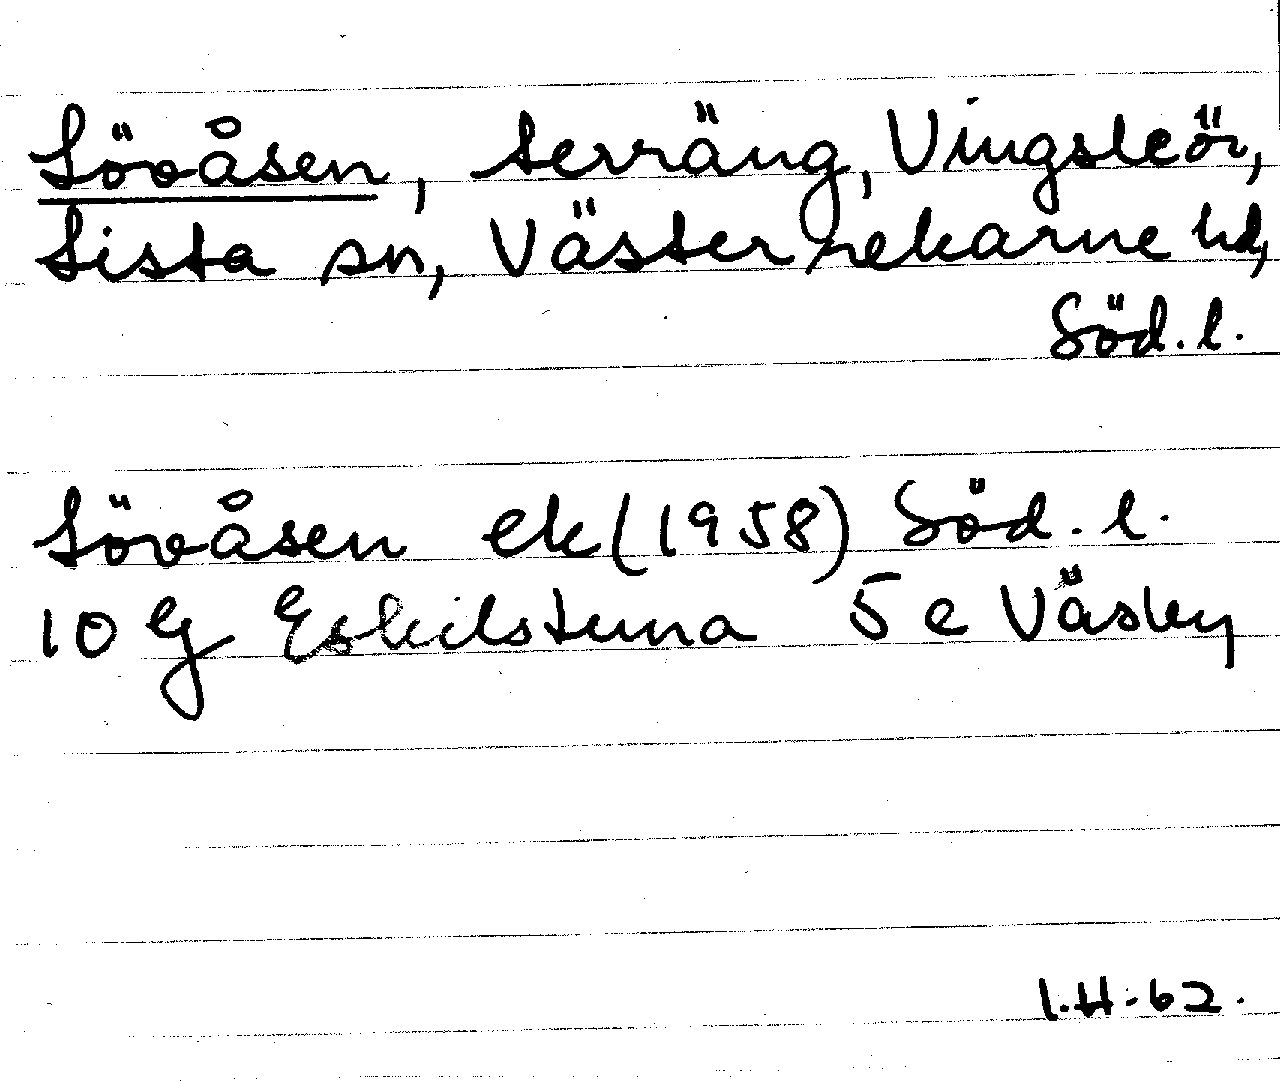 Lövåsen, terräng, Vingsleör,
Lista sn, Västerrekarne hd,
Söd. l.
Lövåsen ek (1958) Söd. l.
10 G Eskilstuna 5 e Väsby
I.H-62.